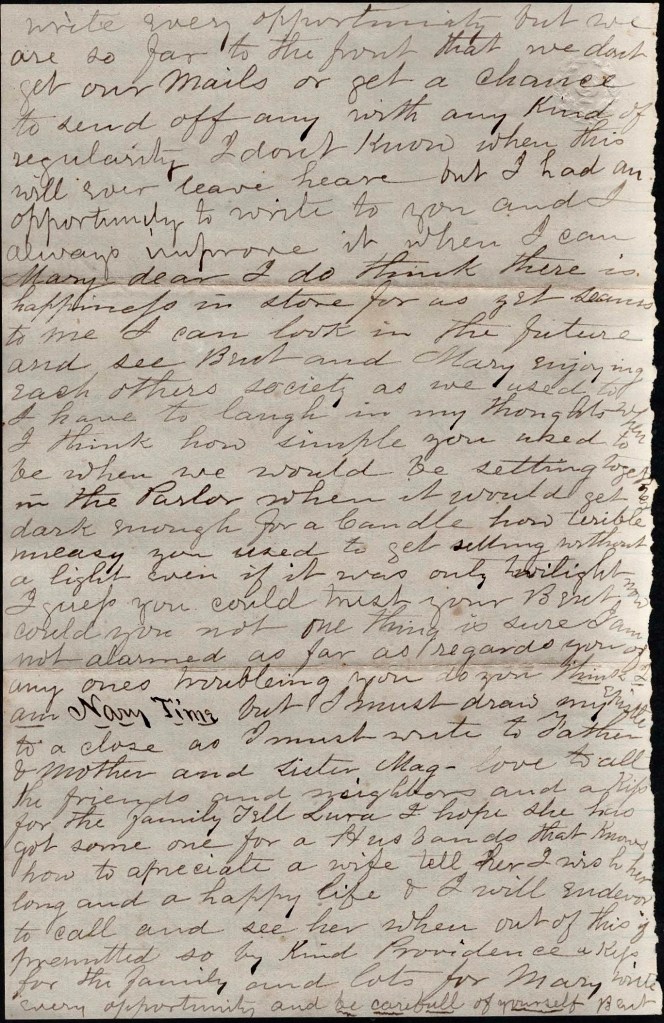 write every opportuniaty but we
are so far to the front that we dont
get our mails or get a chance
to send off any with any Kind of
regularity I dont Know when this
will ever leave heare but I had an
opportunity to write to you and I
always improve it when I can
Mary dear I do think there is
happiness in store for us yet seams
to me I can look in the future
and see Bent and Mary enjoying
each others society as we used to
I have to laugh in my thoughts when
I think how simple you used to
be when we would be setting together
in the Parlor when it would get
dark enough for a Candle how terible
uneasy you used to get setting without
a light even if it was only twilight
I guess you could trust your Bent now
could you not one thing is sure I am
not alarmed as far as regards you of
any ones troubleing you do you think I
am Nary Time but I must draw my epistle
to a close as I must write to Father
& Mother and Sister Mag - love to all
the friends and neighbors and a Kiss
for the family Tell Lura I hope she has
got some one for a Husbands that Knows
how to apreciate a wife tell her I wish her
long and a happy life & I will endevor
to call and see her when out of this if
premitted so by Kind Providence a Kiss
for the family and lots for Mary write
every opportunity and be carefull of yourself Bent